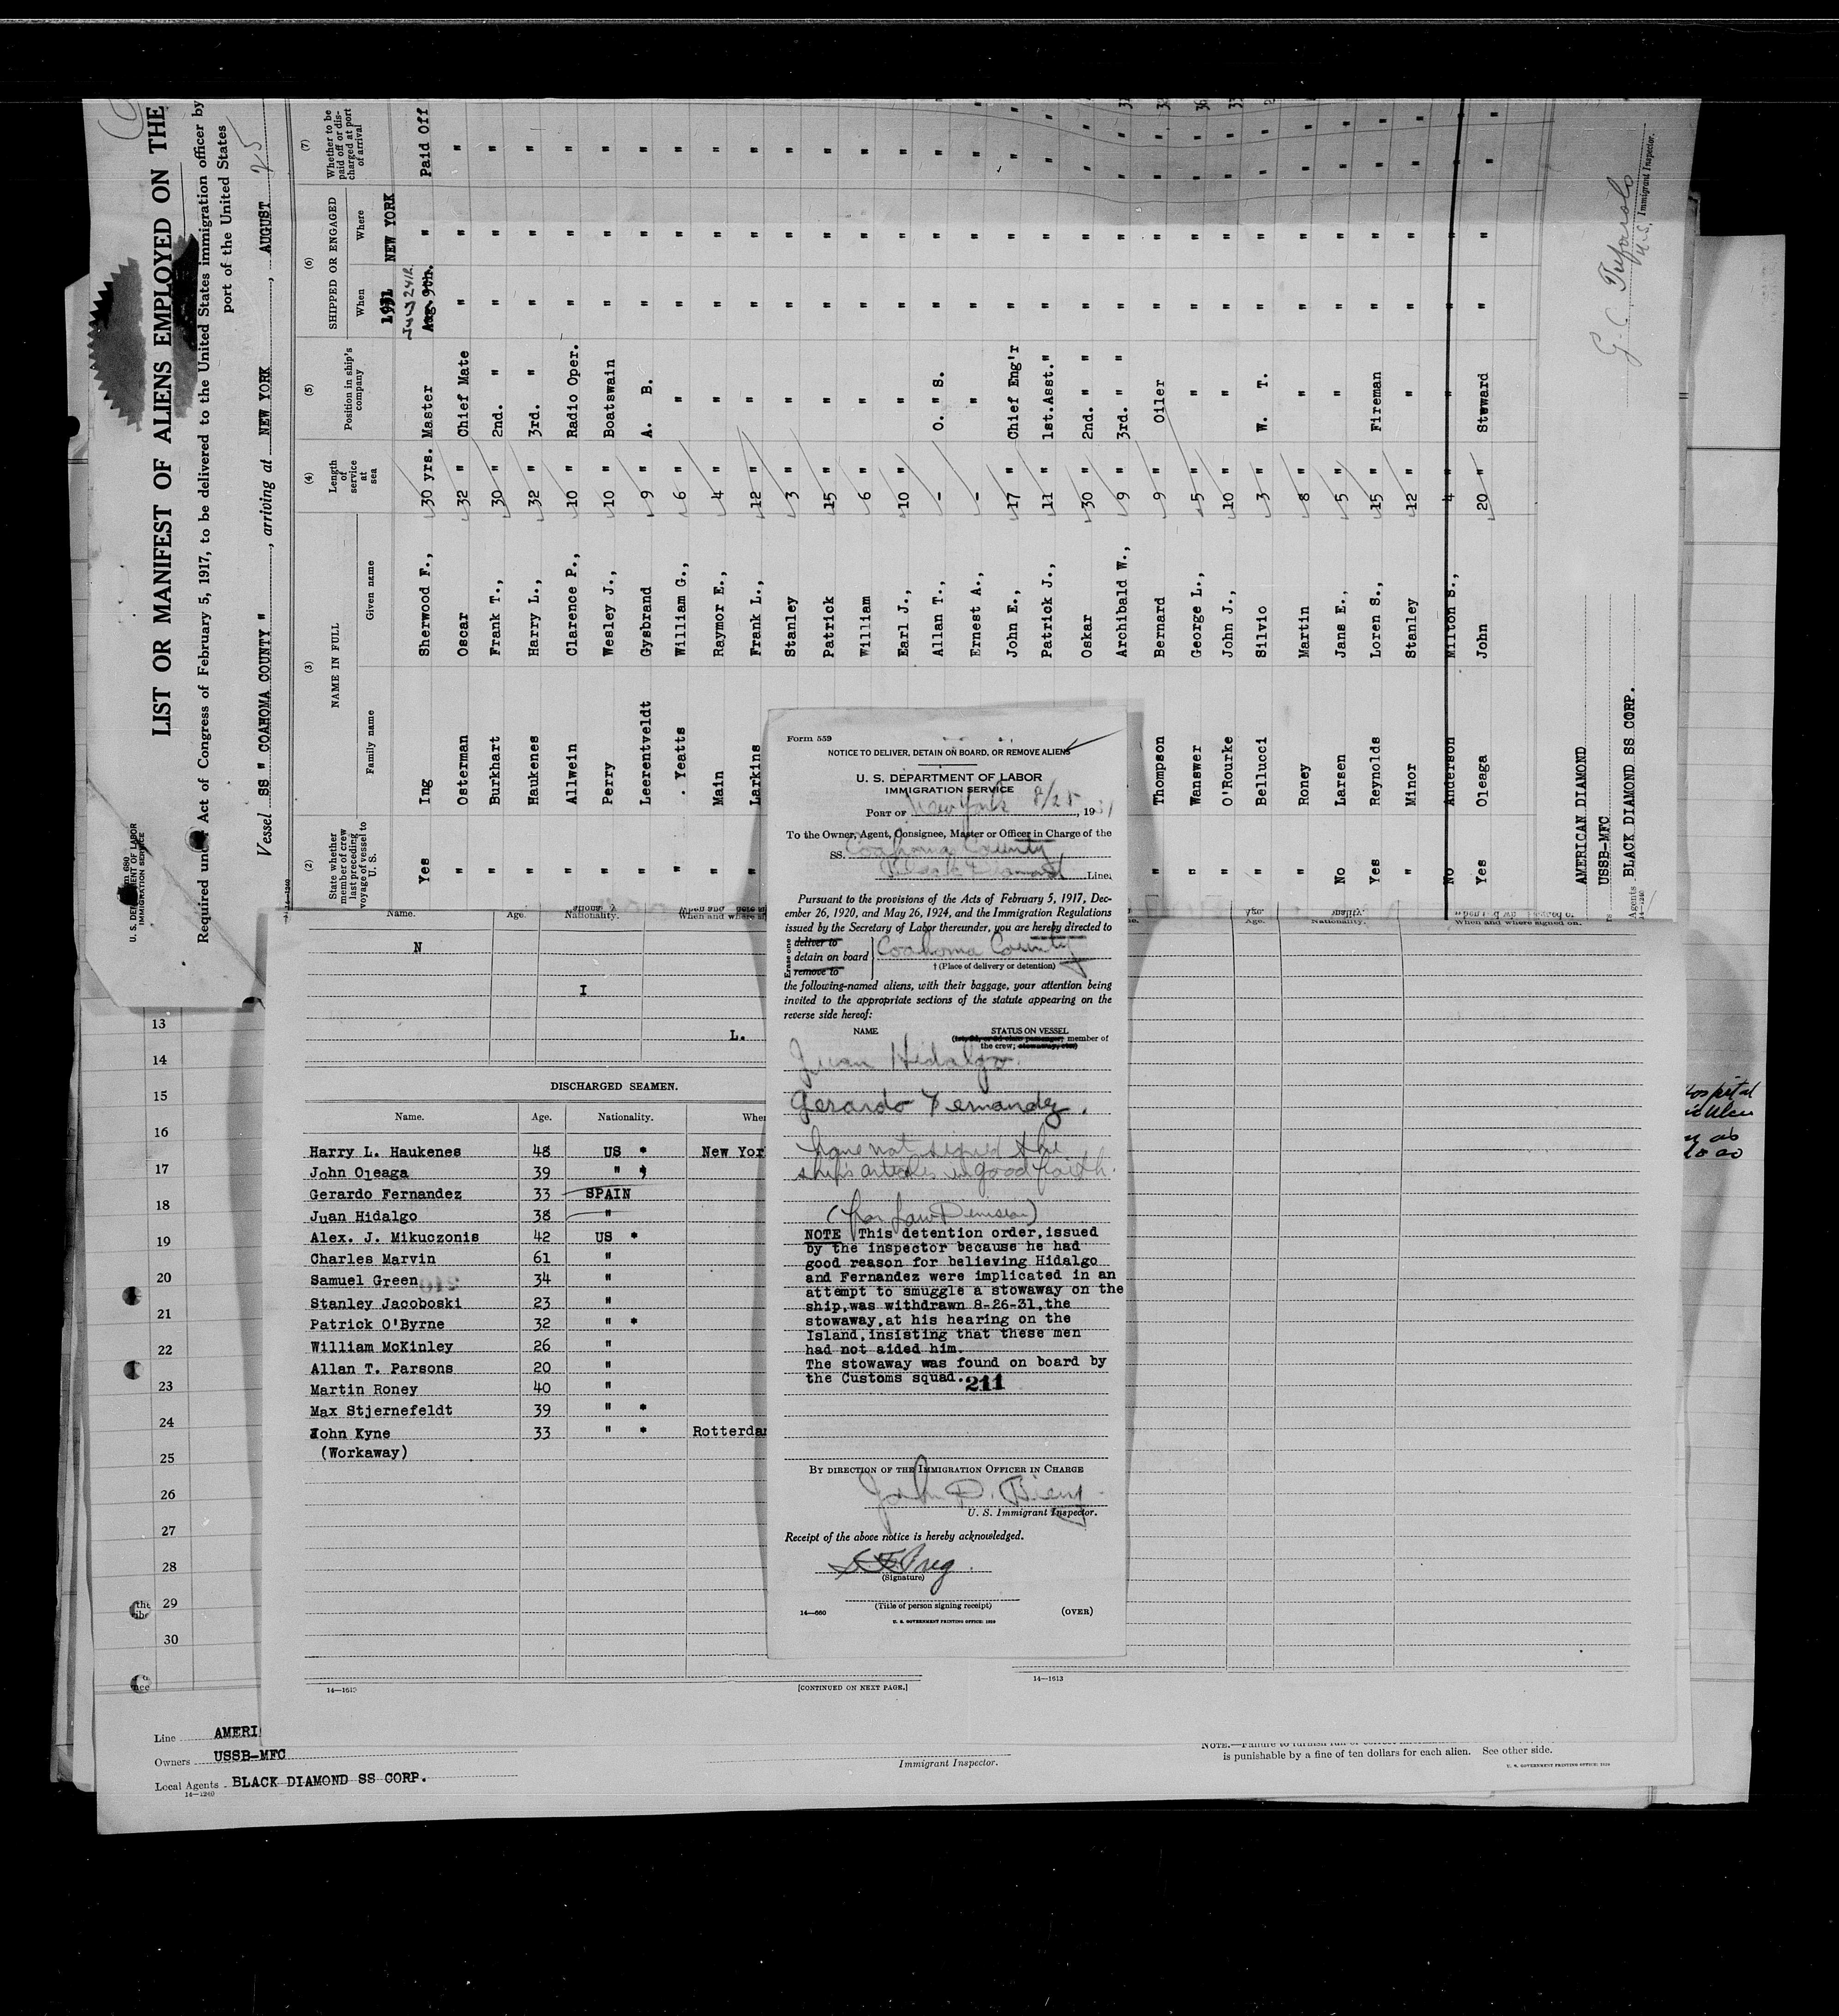 LIST OR MANIFEST OF ALIENS EMPLOYED ON THE
Required under Act of Congress of February 5, 1917, to be delivered to the United States immigration officer by
port of the United States
Vessel SS " COAHOMA COUNTY ", arriving at NEW YORK, AUGUST 25
U. S. DEPARTMENT OF LABOR
IMMIGRATION SERVICE
14-1240
(2) (3) (4) (5) (6) (7)
State whether member of crew last preceding voyage of vessel to U. S.
NAME IN FULL
Family name Given name
Length of service at sea
Position in ship's company
SHIPPED OR ENGAGED
When Where
Whether to be paid off or discharged at port of arrival
1931 NEW YORK
July 24th
Yes Ing Sherwood F., 30 yrs. Master Aug. 9th. " Paid Off
" Osterman Oscar 32 " Chief Mate " " "
" Burkhart Frank T., 30 " 2nd. " " " "
" Haukenes Harry L., 32 " 3rd. " " " "
" Allwein Clarence P., 10 " Radio Oper. " " "
" Perry Wesley J., 10 " Boatswain " " "
" Leerentveldt Gysbrand 9 " A. B. " " "
" . Yeatts William G., 6 " " " " "
" Main Raymor E., 4 " " " " "
" Larkins Frank L., 12 " " " " "
Stanley 3 " " " " "
Patrick 15 " " " " "
William 6 " " " " "
Earl J., 10 " " " " "
Allan T., - O. " S. " " "
Ernest A., - " " " "
John E., 17 " Chief Eng'r " " "
Patrick J., 11 " 1st.Asst." " " "
Oskar 30 " 2nd. " " " " "
Archibald W., 9 " 3rd. " " " " "
" Thompson Bernard 9 " Oiler " " "
" Wanser George L., 5 " " " " "
" O'Rourke John J., 10 " " " " "
" Bellucci Silvio 3 " W. T. " " "
" Roney Martin 8 " " " " "
No Larsen Jans E., 5 " " " " "
Yes Reynolds Loren S., 15 " Fireman " " "
" Minor Stanley 12 " " " " "
No Anderson Milton S., 4 " " " " "
Yes Oleaga John 20 " Steward " " "
AMERICAN DIAMOND
USSB-MFC
Agents BLACK DIAMOND SS CORP.
14-1240
Immigrant Inspector.
Name. Age. Nationality.
N
I
L.
DISCHARGED SEAMEN.
Name. Age. Nationality. Whe
Harry L. Haukenes 48 US * New Yor
John Oleaga 39 " *
Gerardo Fernandez 33 SPAIN
Juan Hidalgo 38 "
Alex. J. Mikuczonis 42 US *
Charles Marvin 61 "
Samuel Green 34 "
Stanley Jacoboski 23 "
Patrick O'Byrne 32 " *
William McKinley 26 "
Allan T. Parsons 20 "
Martin Roney 40 "
Max Stjernefeldt 39 " *
John Kyne 33 " * Rotterda
(Workaway)
14-1613
[CONTINUED ON NEXT PAGE.]
14-1613
Form 559
NOTICE TO DELIVER, DETAIN ON BOARD, OR REMOVE ALIENS
U. S. DEPARTMENT OF LABOR
IMMIGRATION SERVICE
PORT OF New York 8/25, 1931
To the Owner, Agent, Consignee, Master or Officer in Charge of the
SS. Coahoma County
Black Diamond Line:
Pursuant to the provisions of the Acts of February 5, 1917, Dec-
ember 26, 1920, and May 26, 1924, and the Immigration Regulations
issued by the Secretary of Labor thereunder, you are hereby directed to
Erase one
deliver to
detain on board
remove to
Coahoma County
† (Place of delivery or detention)
the following-named aliens, with their baggage, your attention being
invited to the appropriate sections of the statute appearing on the
reverse side hereof:
NAME STATUS ON VESSEL
(1st, 2d, or 3d class passenger; member of
the crew; stowaway, etc.)
Juan Hidalgo.
Gerardo Fernandez.
have not signed the
ship's articles in good faith.
(for Law Division)
NOTE This detention order,issued
by the inspector because he had
good reason for believing Hidalgo
and Fernandez were implicated in an
attempt to smuggle a stowaway on the
ship,was withdrawn 8-26-31,the
stowaway,at his hearing on the
Island,insisting that these men
had not aided him.
The stowaway was found on board by
the Customs squad.
211
BY DIRECTION OF THE IMMIGRATION OFFICER IN CHARGE
U. S. Immigrant Inspector.
Receipt of the above notice is hereby acknowledged.
(Signature)
(Title of person signing receipt)
14-660
(OVER)
U. S. GOVERNMENT PRINTING OFFICE: 1930
13
14
15
16
17
18
19
20
21
22
23
24
25
26
27
28
29
30
Line AMERI
Owners USSB-MFC
Local Agents BLACK DIAMOND SS CORP.
14-1240
Immigrant Inspector.
is punishable by a fine of ten dollars for each alien. See other side.